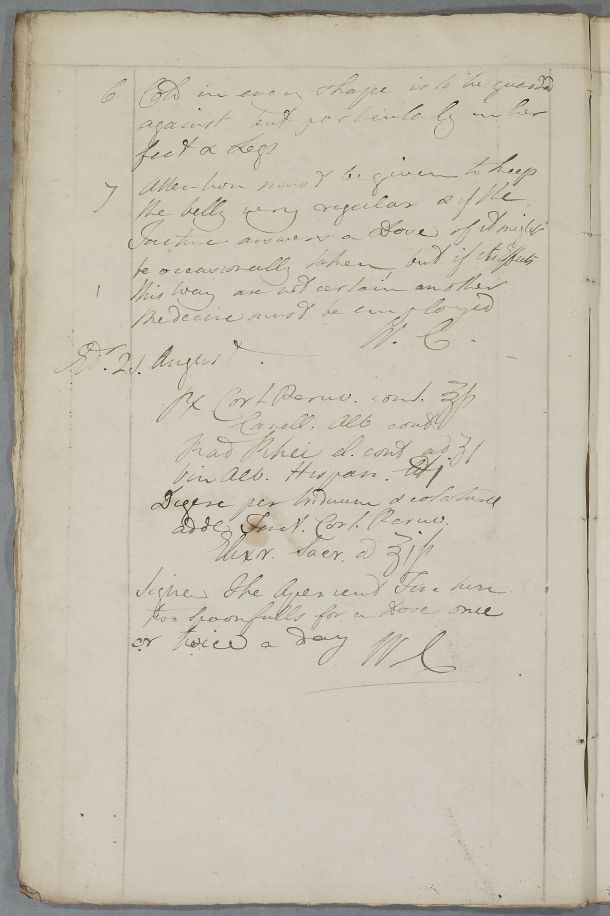 6 Cold in every shape is to be guarded
against but particularly in her
feet & Legs
7 Attention must be given to keep
the belly very regular & if the
Tincture answers a Dose of it might
be occasionally taken but if its effects
this way are not certain another
Medecine must be employed
W. C.
21. August
Rx Cort Peruv. cont. ℥ß
Canell. Alb cont
Rad Rhei el. cont ad ʒ1
Vin Alb. Hispan. ℔1
Digere per triduum & colaturae
adde Tinct. Cort Peruv.
Elixr. Sacr. a ℥jß
Signe The Aperient Tincture
two Spoonfulls for a Dose once
or twice a Day
W C